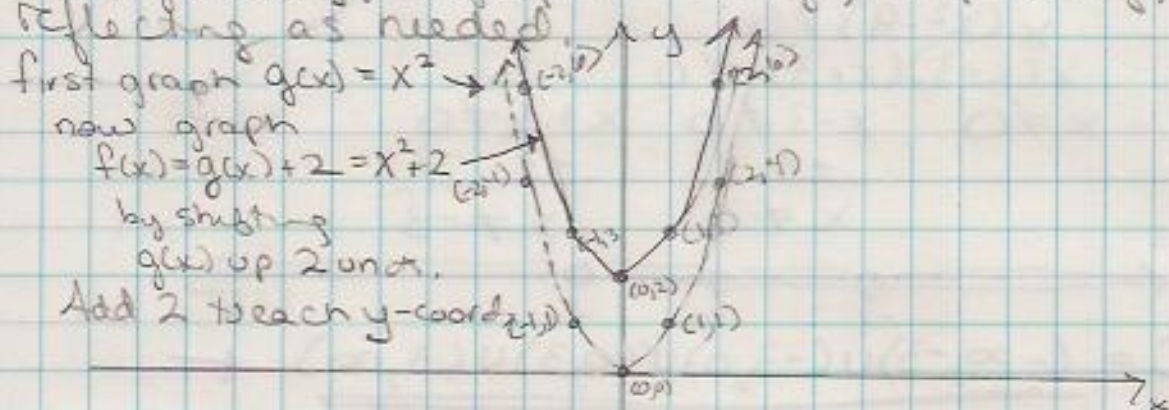 reflecting as needed.
first graph g(x) = x²
now graph
f(x)=g(x)+2=x²+2
by shifting
g(x) up 2 units.
Add 2 to each y-coord.
y
(-2,6)
(2,4)
(-1,3)
(0,2)
(-1,1)
(1,1)
(0,0)
x